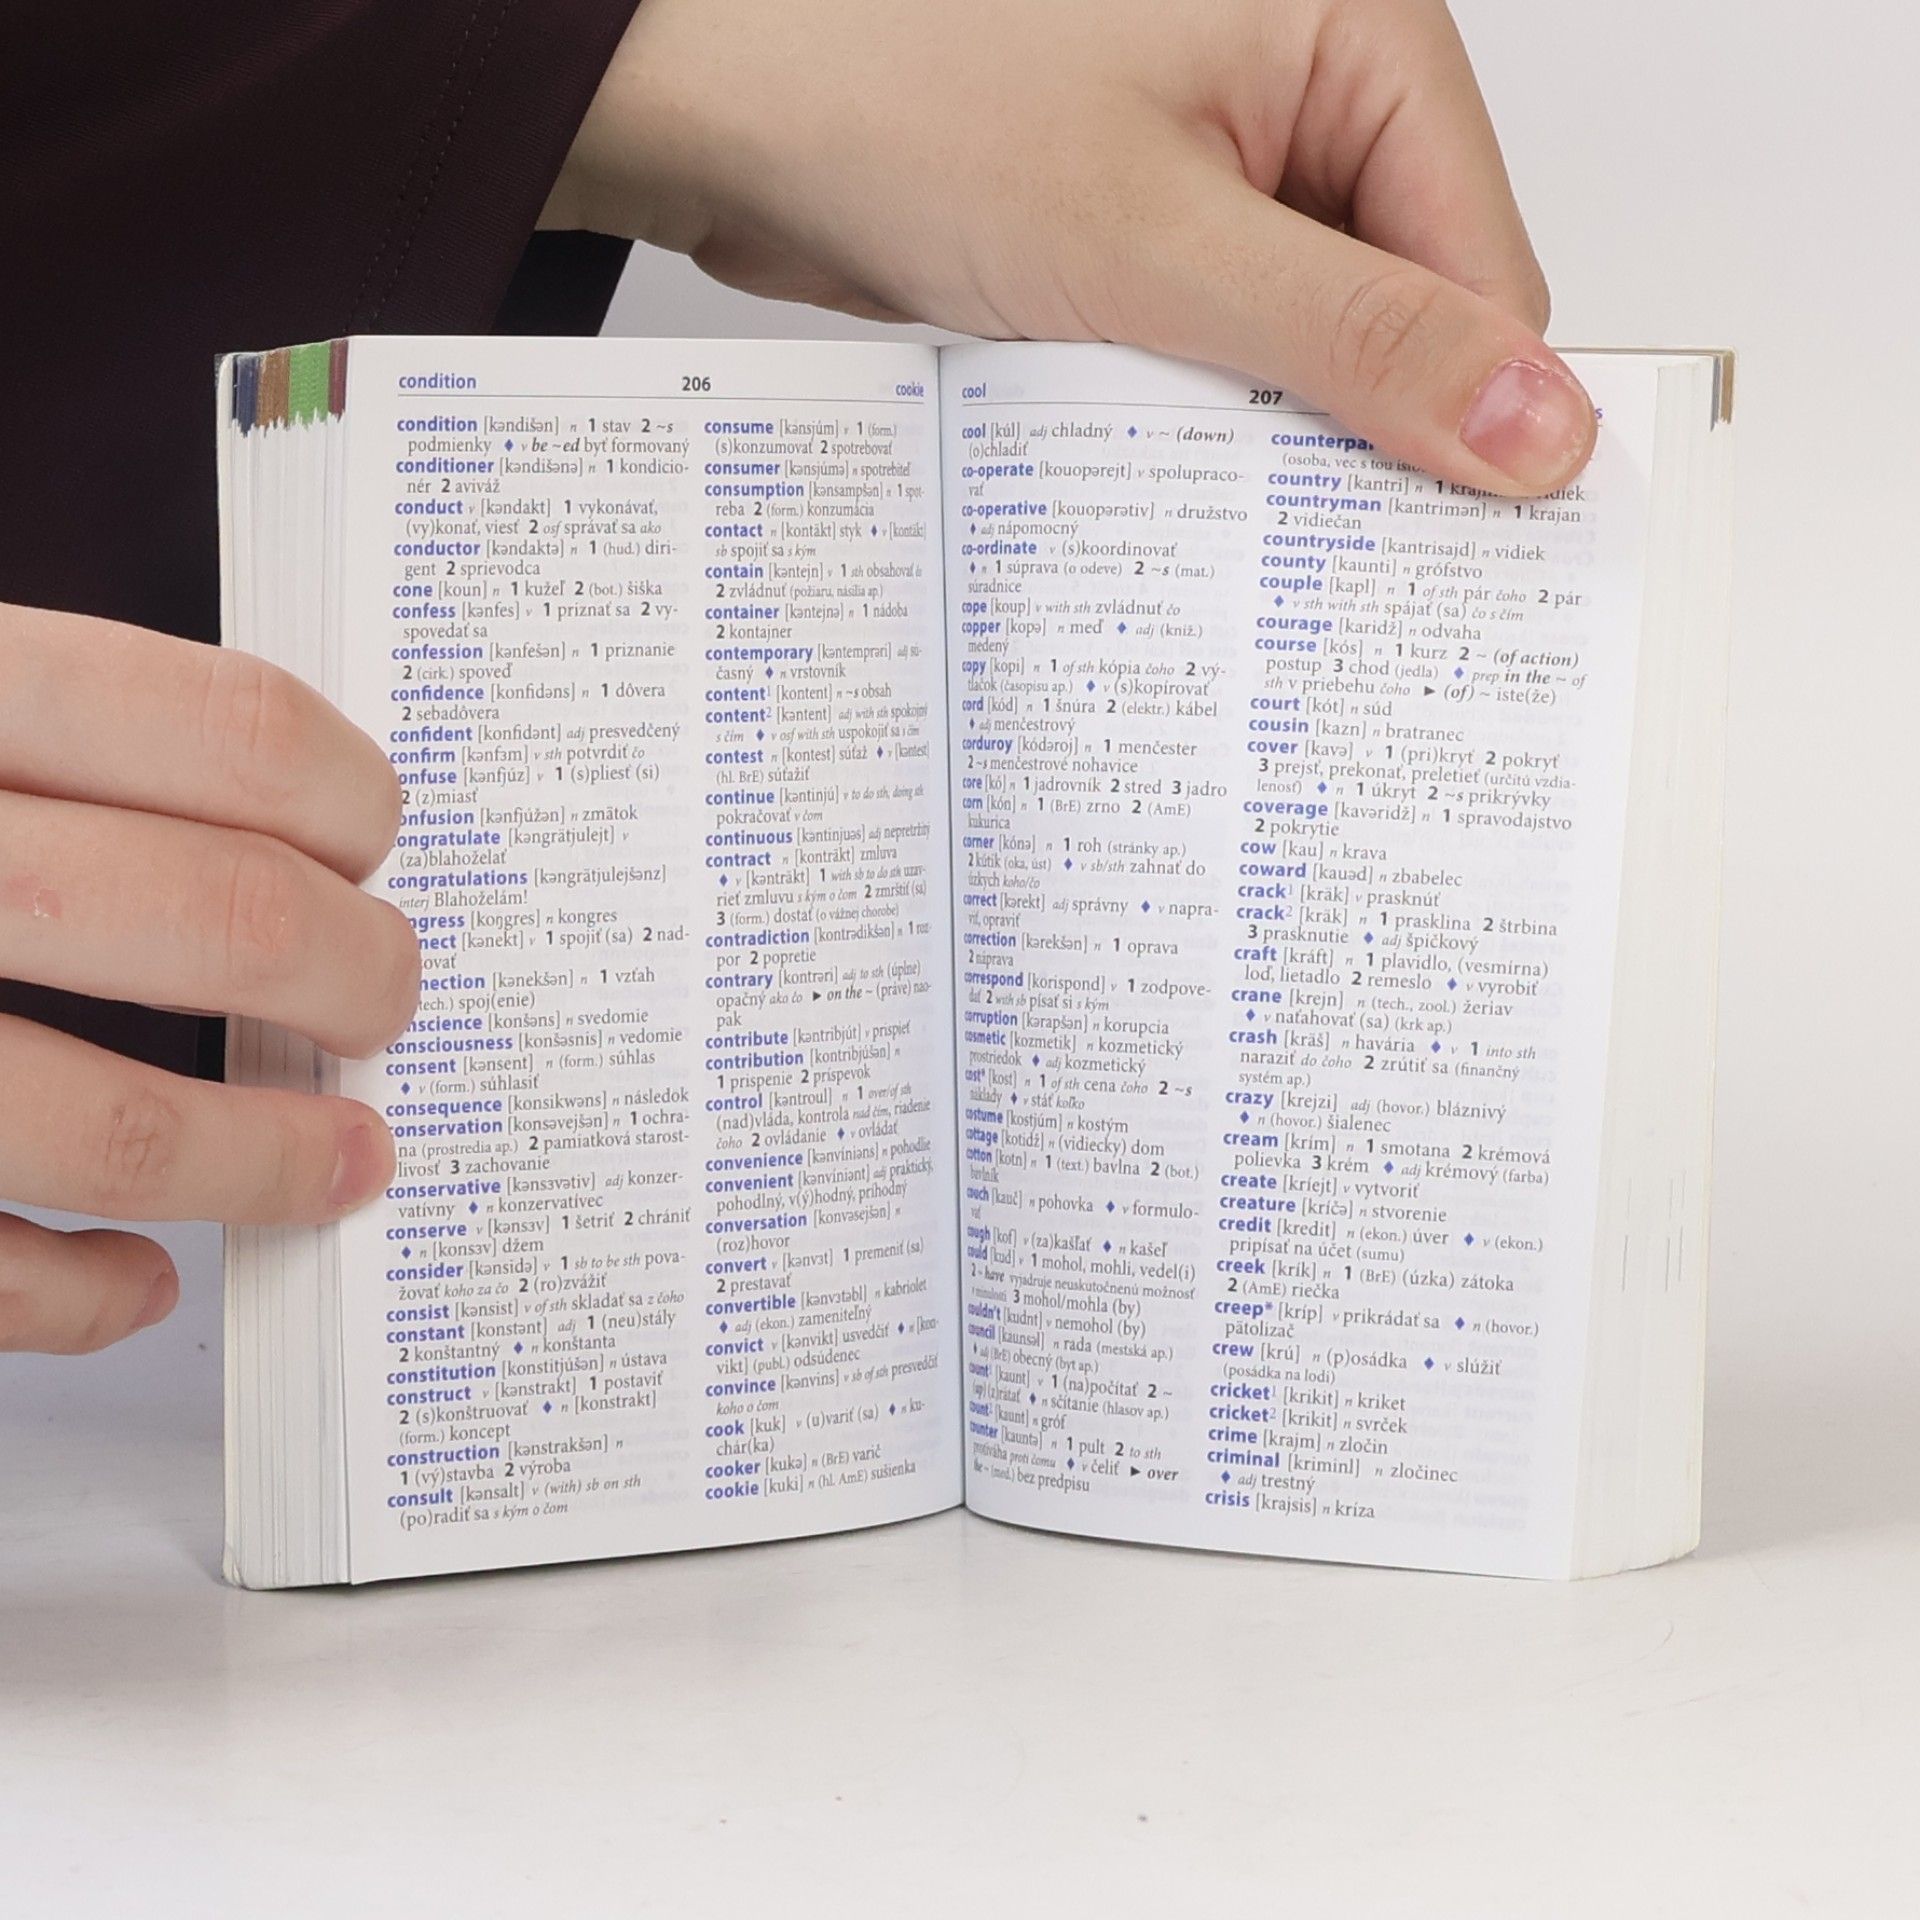 condition 206 cookie
condition [kəndišən] n 1 stav 2 ~s
podmienky ♦ v be ~ed byť formovaný
conditioner [kəndišənə] n 1 kondicio-
nér 2 aviváž
conduct v [kəndakt] 1 vykonávať,
(vy)konať, viesť 2 osf správať sa ako
conductor [kəndaktə] n 1 (hud.) diri-
gent 2 sprievodca
cone [koun] n 1 kužeľ 2 (bot.) šiška
confess [kənfes] v 1 priznať sa 2 vy-
spovedať sa
confession [kənfešən] n 1 priznanie
2 (cirk.) spoveď
confidence [konfidəns] n 1 dôvera
2 sebadôvera
confident [konfidənt] adj presvedčený
confirm [kənfɜm] v sth potvrdiť čo
onfuse [kənfjúz] v 1 (s)pliesť (si)
2 (z)miasť
onfusion [kənfjúžən] n zmätok
ongratulate [kəngrätjulejt] v
(za)blahoželať
congratulations [kəngrätjulejšənz]
interj Blahoželám!
ngress [koŋgres] n kongres
nect [kənekt] v 1 spojiť (sa) 2 nad-
ovať
nection [kənekšən] n 1 vzťah
tech.) spoj(enie)
nscience [konšəns] n svedomie
consciousness [konšəsnis] n vedomie
consent [kənsent] n (form.) súhlas
♦ v (form.) súhlasiť
consequence [konsikwəns] n následok
onservation [konsəvejšən] n 1 ochra-
na (prostredia ap.) 2 pamiatková starost-
livosť 3 zachovanie
conservative [kənsɜvətiv] adj konzer-
vatívny ♦ n konzervatívec
conserve v [kənsɜv] 1 šetriť 2 chrániť
♦ n [konsɜv] džem
consider [kənsidə] v 1 sb to be sth pova-
žovať koho za čo 2 (ro)zvážiť
consist [kənsist] v of sth skladať sa z čoho
constant [konstənt] adj 1 (neu)stály
2 konštantný ♦ n konštanta
constitution [konstitjúšən] n ústava
construct v [kənstrakt] 1 postaviť
2 (s)konštruovať ♦ n [konstrakt]
(form.) koncept
construction [kənstrakšən] n
1 (vý)stavba 2 výroba
consult [kənsalt] v (with) sb on sth
(po)radiť sa s kým o čom
consume [kənsjúm] v 1 (form.)
(s)konzumovať 2 spotrebovať
consumer [kənsjúmə] n spotrebiteľ
consumption [kənsampšən] n 1 spot-
reba 2 (form.) konzumácia
contact n [kontäkt] styk ♦ v [kontäkt]
sb spojiť sa s kým
contain [kəntejn] v 1 sth obsahovať čo
2 zvládnuť (požiaru, násilia ap.)
container [kəntejnə] n 1 nádoba
2 kontajner
contemporary [kəntemprəri] adj sú-
časný ♦ n vrstovník
content¹ [kontent] n ~s obsah
content² [kəntent] adj with sth spokojný
s čím ♦ v osf with sth uspokojiť sa s čím
contest n [kontest] súťaž ♦ v [kəntest]
(hl. BrE) súťažiť
continue [kəntinjú] v to do sth, doing sth
pokračovať v čom
continuous [kəntinjuəs] adj nepretržitý
contract n [konträkt] zmluva
♦ v [kənträkt] 1 with sb to do sth uzav-
rieť zmluvu s kým o čom 2 zmrštiť (sa)
3 (form.) dostať (o vážnej chorobe)
contradiction [kontrədikšən] n 1 roz-
por 2 popretie
contrary [kontrəri] adj to sth (úplne)
opačný ako čo ► on the ~ (práve) nao-
pak
contribute [kəntribjút] v prispieť
contribution [kontribjúšən] n
1 prispenie 2 príspevok
control [kəntroul] n 1 over/of sth
(nad)vláda, kontrola nad čím, riadenie
čoho 2 ovládanie ♦ v ovládať
convenience [kənviniəns] n pohodlie
convenient [kənviniənt] adj praktický,
pohodlný, v(ý)hodný, príhodný
conversation [konvəsejšən] n
(roz)hovor
convert v [kənvɜt] 1 premeniť (sa)
2 prestavať
convertible [kənvɜtəbl] n kabriolet
♦ adj (ekon.) zameniteľný
convict v [kənvikt] usvedčiť ♦ n [kon-
vikt] (publ.) odsúdenec
convince [kənvins] v sb of sth presvedčiť
koho o čom
cook [kuk] v (u)variť (sa) ♦ n ku-
chár(ka)
cooker [kukə] n (BrE) varič
cookie [kuki] n (hl. AmE) sušienka
cool 207 s
cool [kúl] adj chladný ♦ v ~ (down)
(o)chladiť
co-operate [kouopərejt] v spolupraco-
vať
co-operative [kouopərətiv] n družstvo
♦ adj nápomocný
co-ordinate v (s)koordinovať
♦ n 1 súprava (o odeve) 2 ~s (mat.)
súradnice
cope [koup] v with sth zvládnuť čo
copper [kopə] n meď ♦ adj (kniž.)
medený
copy [kopi] n 1 of sth kópia čoho 2 vý-
tlačok (časopisu ap.) ♦ v (s)kopírovať
cord [kód] n 1 šnúra 2 (elektr.) kábel
♦ adj menčestrový
corduroy [kódəroj] n 1 menčester
2 ~s menčestrové nohavice
core [kó] n 1 jadrovník 2 stred 3 jadro
corn [kón] n 1 (BrE) zrno 2 (AmE)
kukurica
corner [kónə] n 1 roh (stránky ap.)
2 kútik (oka, úst) ♦ v sb/sth zahnať do
úzkych koho/čo
correct [kərekt] adj správny ♦ v napra-
viť, opraviť
correction [kərekšən] n 1 oprava
2 náprava
correspond [korispond] v 1 zodpove-
dať 2 with sb písať si s kým
corruption [kərapšən] n korupcia
cosmetic [kozmetik] n kozmetický
prostriedok ♦ adj kozmetický
cost* [kost] n 1 of sth cena čoho 2 ~s
náklady ♦ v stáť koľko
costume [kostjúm] n kostým
cottage [kotidž] n (vidiecky) dom
cotton [kotn] n 1 (text.) bavlna 2 (bot.)
bavlník
couch [kauč] n pohovka ♦ v formulo-
vať
cough [kof] v (za)kašľať ♦ n kašeľ
could [kud] v 1 mohol, mohli, vedel(i)
2 ~ have vyjadruje neuskutočnenú možnosť
v minulosti 3 mohol/mohla (by)
couldn't [kudnt] v nemohol (by)
council [kaunsəl] n rada (mestská ap.)
♦ adj (BrE) obecný (byt ap.)
count¹ [kaunt] v 1 (na)počítať 2 ~
(up) (z)rátať ♦ n sčítanie (hlasov ap.)
count² [kaunt] n gróf
counter [kauntə] n 1 pult 2 to sth
protiváha proti čomu ♦ v čeliť ► over
the ~ (med.) bez predpisu
counterpa
(osoba, vec s tou
country [kantri] n 1 vidiek
countryman [kantrimən] n 1 krajan
2 vidiečan
countryside [kantrisajd] n vidiek
county [kaunti] n grófstvo
couple [kapl] n 1 of sth pár čoho 2 pár
♦ v sth with sth spájať (sa) čo s čím
courage [karidž] n odvaha
course [kós] n 1 kurz 2 ~ (of action)
postup 3 chod (jedla) ♦ prep in the ~ of
sth v priebehu čoho ► (of) ~ iste(že)
court [kót] n súd
cousin [kazn] n bratranec
cover [kavə] v 1 (pri)kryť 2 pokryť
3 prejsť, prekonať, preletieť (určitú vzdia-
lenosť) ♦ n 1 úkryt 2 ~s prikrývky
coverage [kavəridž] n 1 spravodajstvo
2 pokrytie
cow [kau] n krava
coward [kauəd] n zbabelec
crack¹ [kräk] v prasknúť
crack² [kräk] n 1 prasklina 2 štrbina
3 prasknutie ♦ adj špičkový
craft [kráft] n 1 plavidlo, (vesmírna)
loď, lietadlo 2 remeslo ♦ v vyrobiť
crane [krejn] n (tech., zool.) žeriav
♦ v naťahovať (sa) (krk ap.)
crash [kräš] n havária ♦ v 1 into sth
naraziť do čoho 2 zrútiť sa (finančný
systém ap.)
crazy [krejzi] adj (hovor.) bláznivý
♦ n (hovor.) šialenec
cream [krím] n 1 smotana 2 krémová
polievka 3 krém ♦ adj krémový (farba)
create [kriejt] v vytvoriť
creature [kríčə] n stvorenie
credit [kredit] n (ekon.) úver ♦ v (ekon.)
pripísať na účet (sumu)
creek [krík] n 1 (BrE) (úzka) zátoka
2 (AmE) riečka
creep* [kríp] v prikrádať sa ♦ n (hovor.)
pätolizač
crew [krú] n (p)osádka ♦ v slúžiť
(posádka na lodi)
cricket¹ [krikit] n kriket
cricket² [krikit] n svrček
crime [krajm] n zločin
criminal [kriminl] n zločinec
♦ adj trestný
crisis [krajsis] n kríza